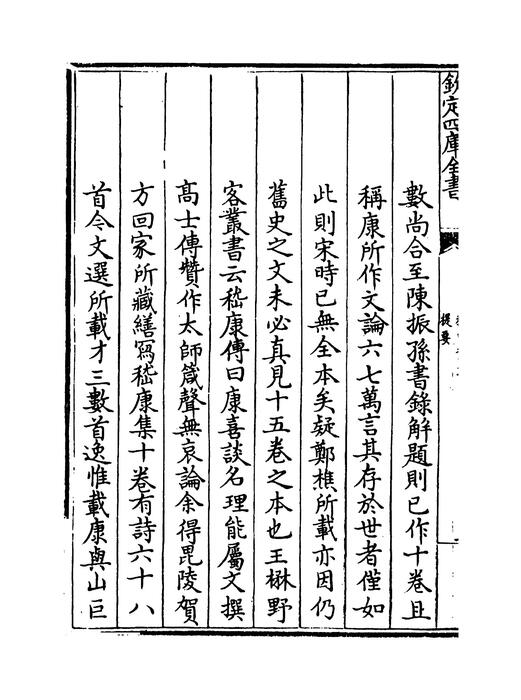 欽定四庫全書
提要
數尚合至陳振孫書錄解題則已作十卷且
稱康所作文論六七萬言其存於世者僅如
此則宋時已無全本矣疑鄭樵所載亦因仍
舊史之文未必真見十五卷之本也王楙野
客叢書云嵇康傳曰康喜談名理能屬文撰
髙士傳贊作太師箴聲無哀論余得毘陵賀
方回家所藏繕寫嵇康集十卷有詩六十八
首今文選所載才三數首逸惟載康與山巨